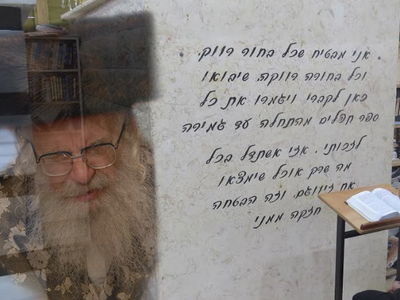 אני מבטיח שכל בחור רווק,
וכל בחורה רווקה, שיבואו
כאן לקברי ויגמרו את כל
ספר תהלים מהתחלה עד גמירה
לזכותי. אזי אשתדל בכל
מה שרק אוכל שימצאו
את זיווגם. וזה הבטחה
חזקה ממני